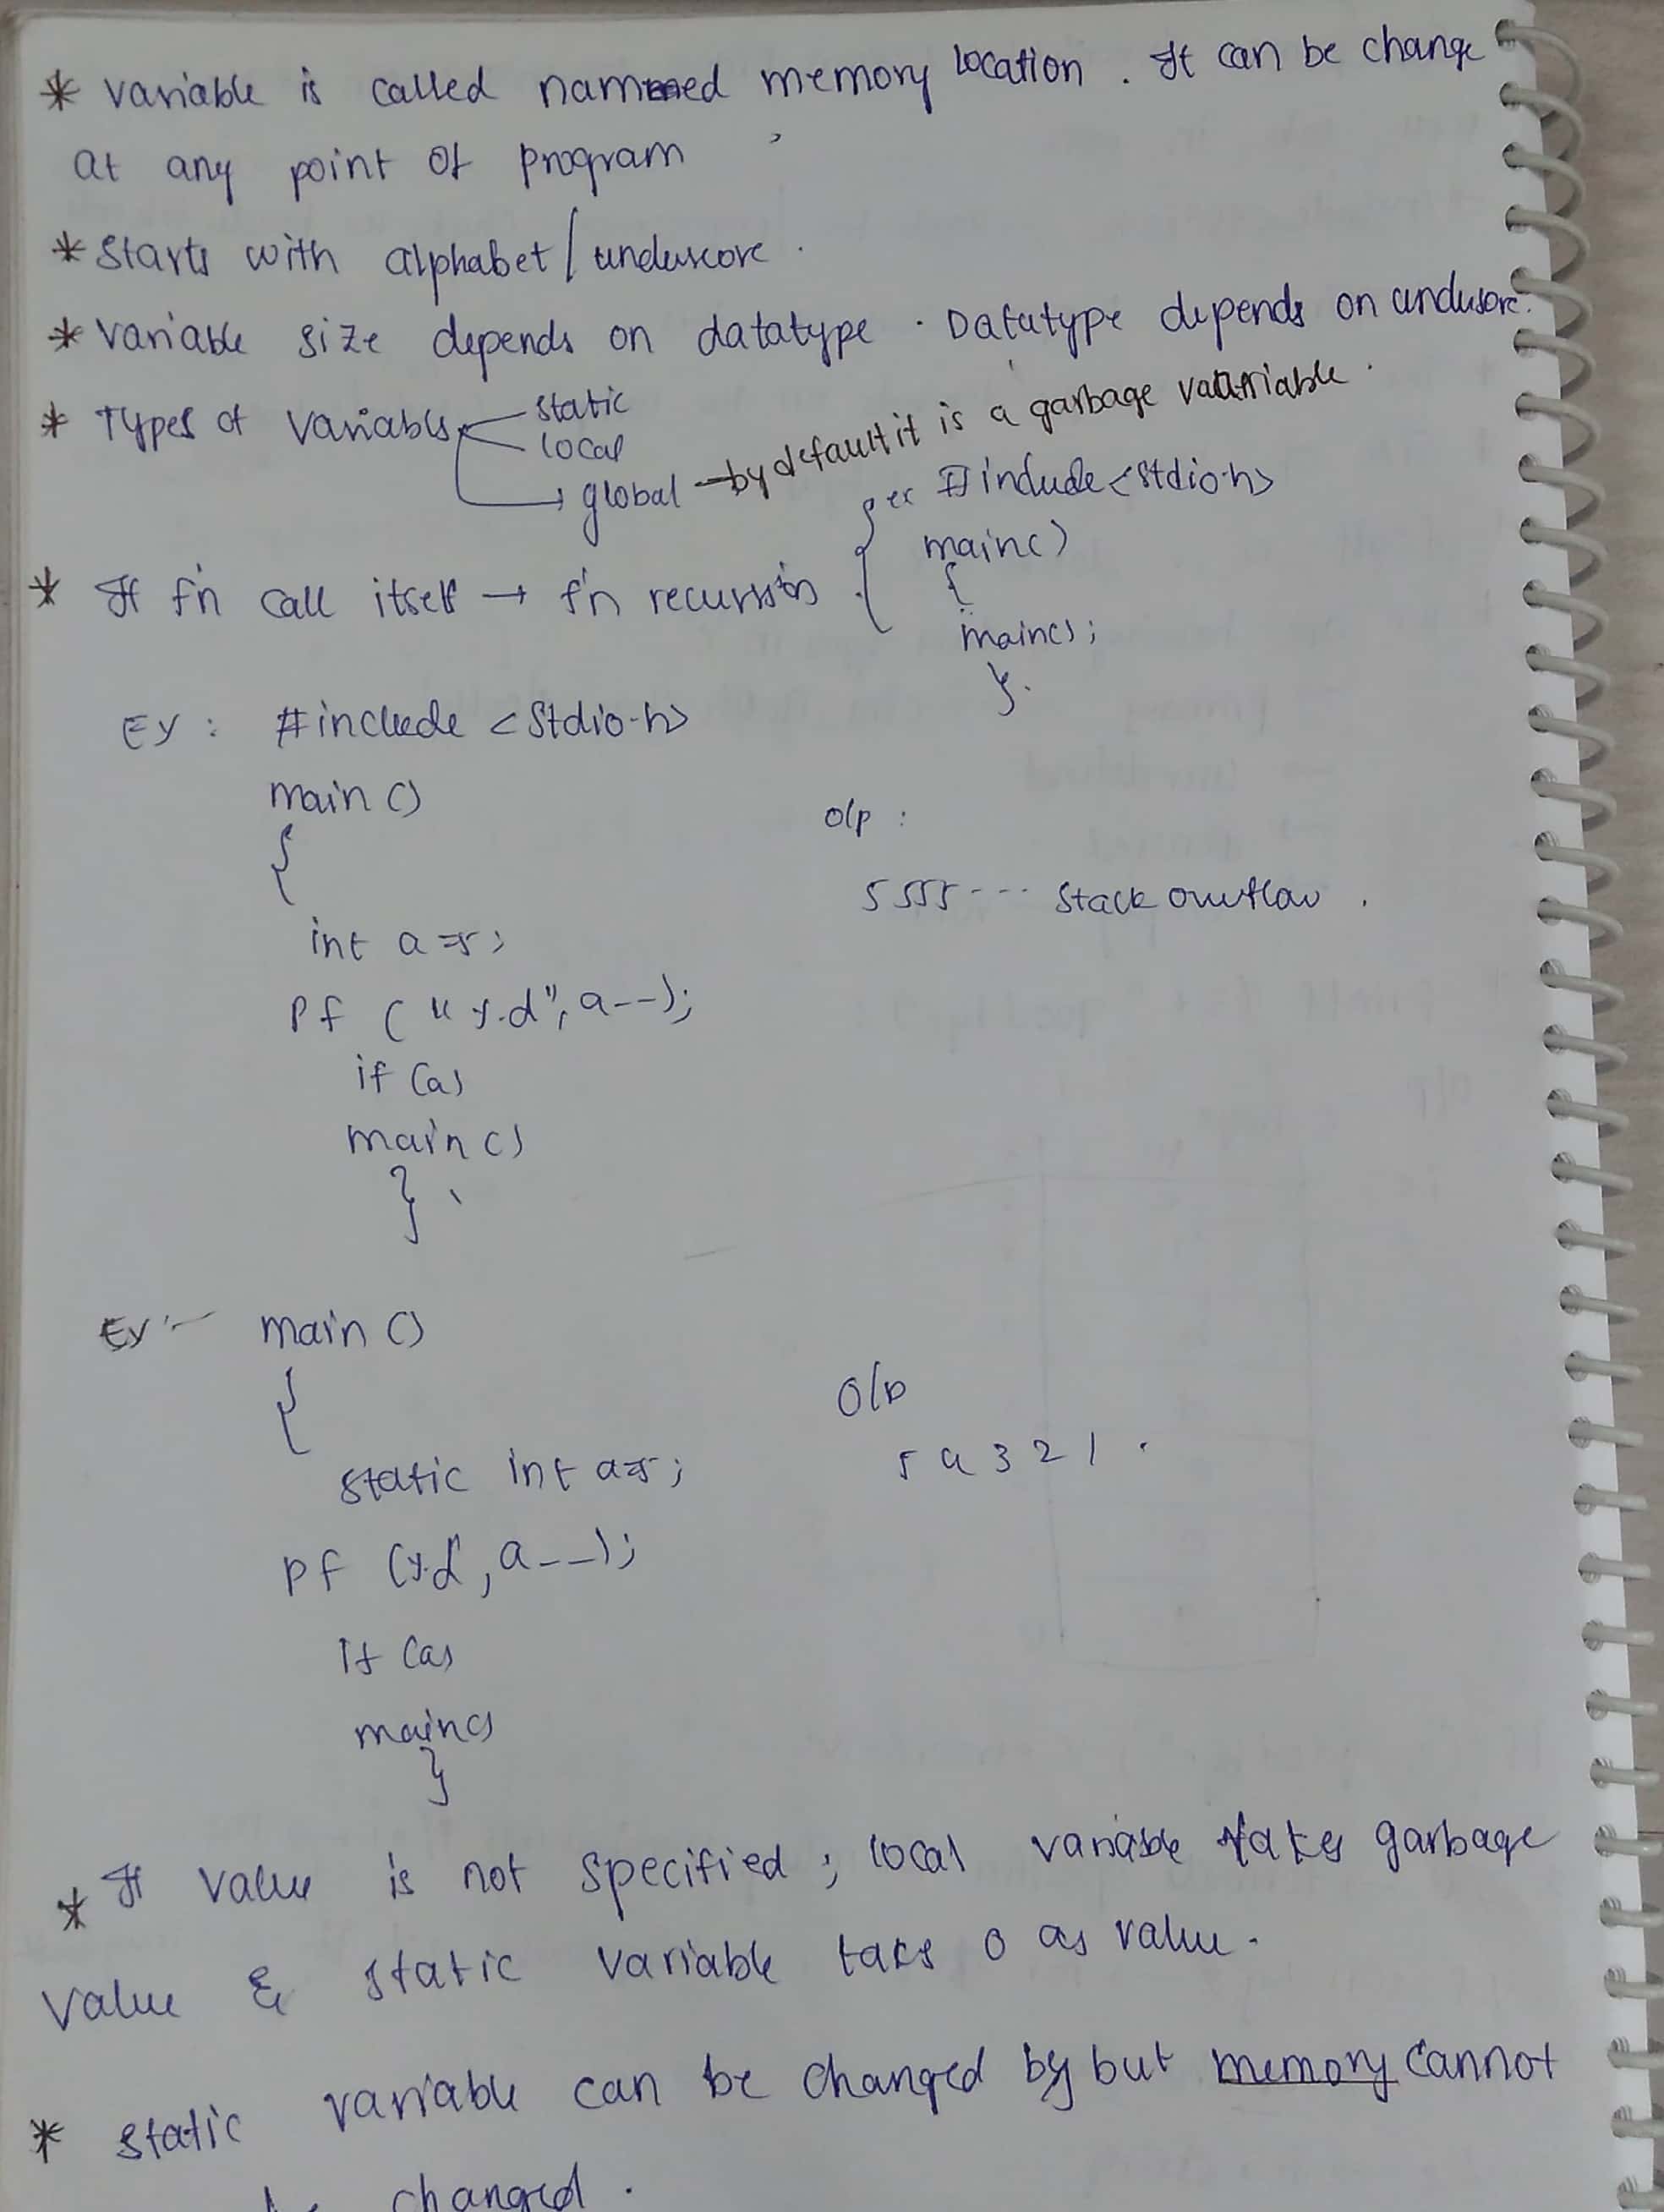 * variable is called nammed memory location. It can be change
at any point of program
* starts with alphabet / underscore.
* variable size depends on datatype. Datatype depends on
* Types of variables
static
local
global → by default it is a garbage variable.
ex #include <stdio.h>
main()
{
main();
}.
* If f'n call itself → f'n recursion
Ex : #include <stdio.h>
main ()
{
int a=5;
Pf ("%d", a--);
if (a)
main ()
}
o/p :
5 555 --- stack overflow.
Ex :- main ()
{
static int a=5;
Pf (%d", a--);
if (a)
main()
}
O/p
5 4 3 2 1.
* If value is not specified ; local variable takes garbage
value & static variable taks 0 as value.
* static variable can be changed by but memory cannot
changed.